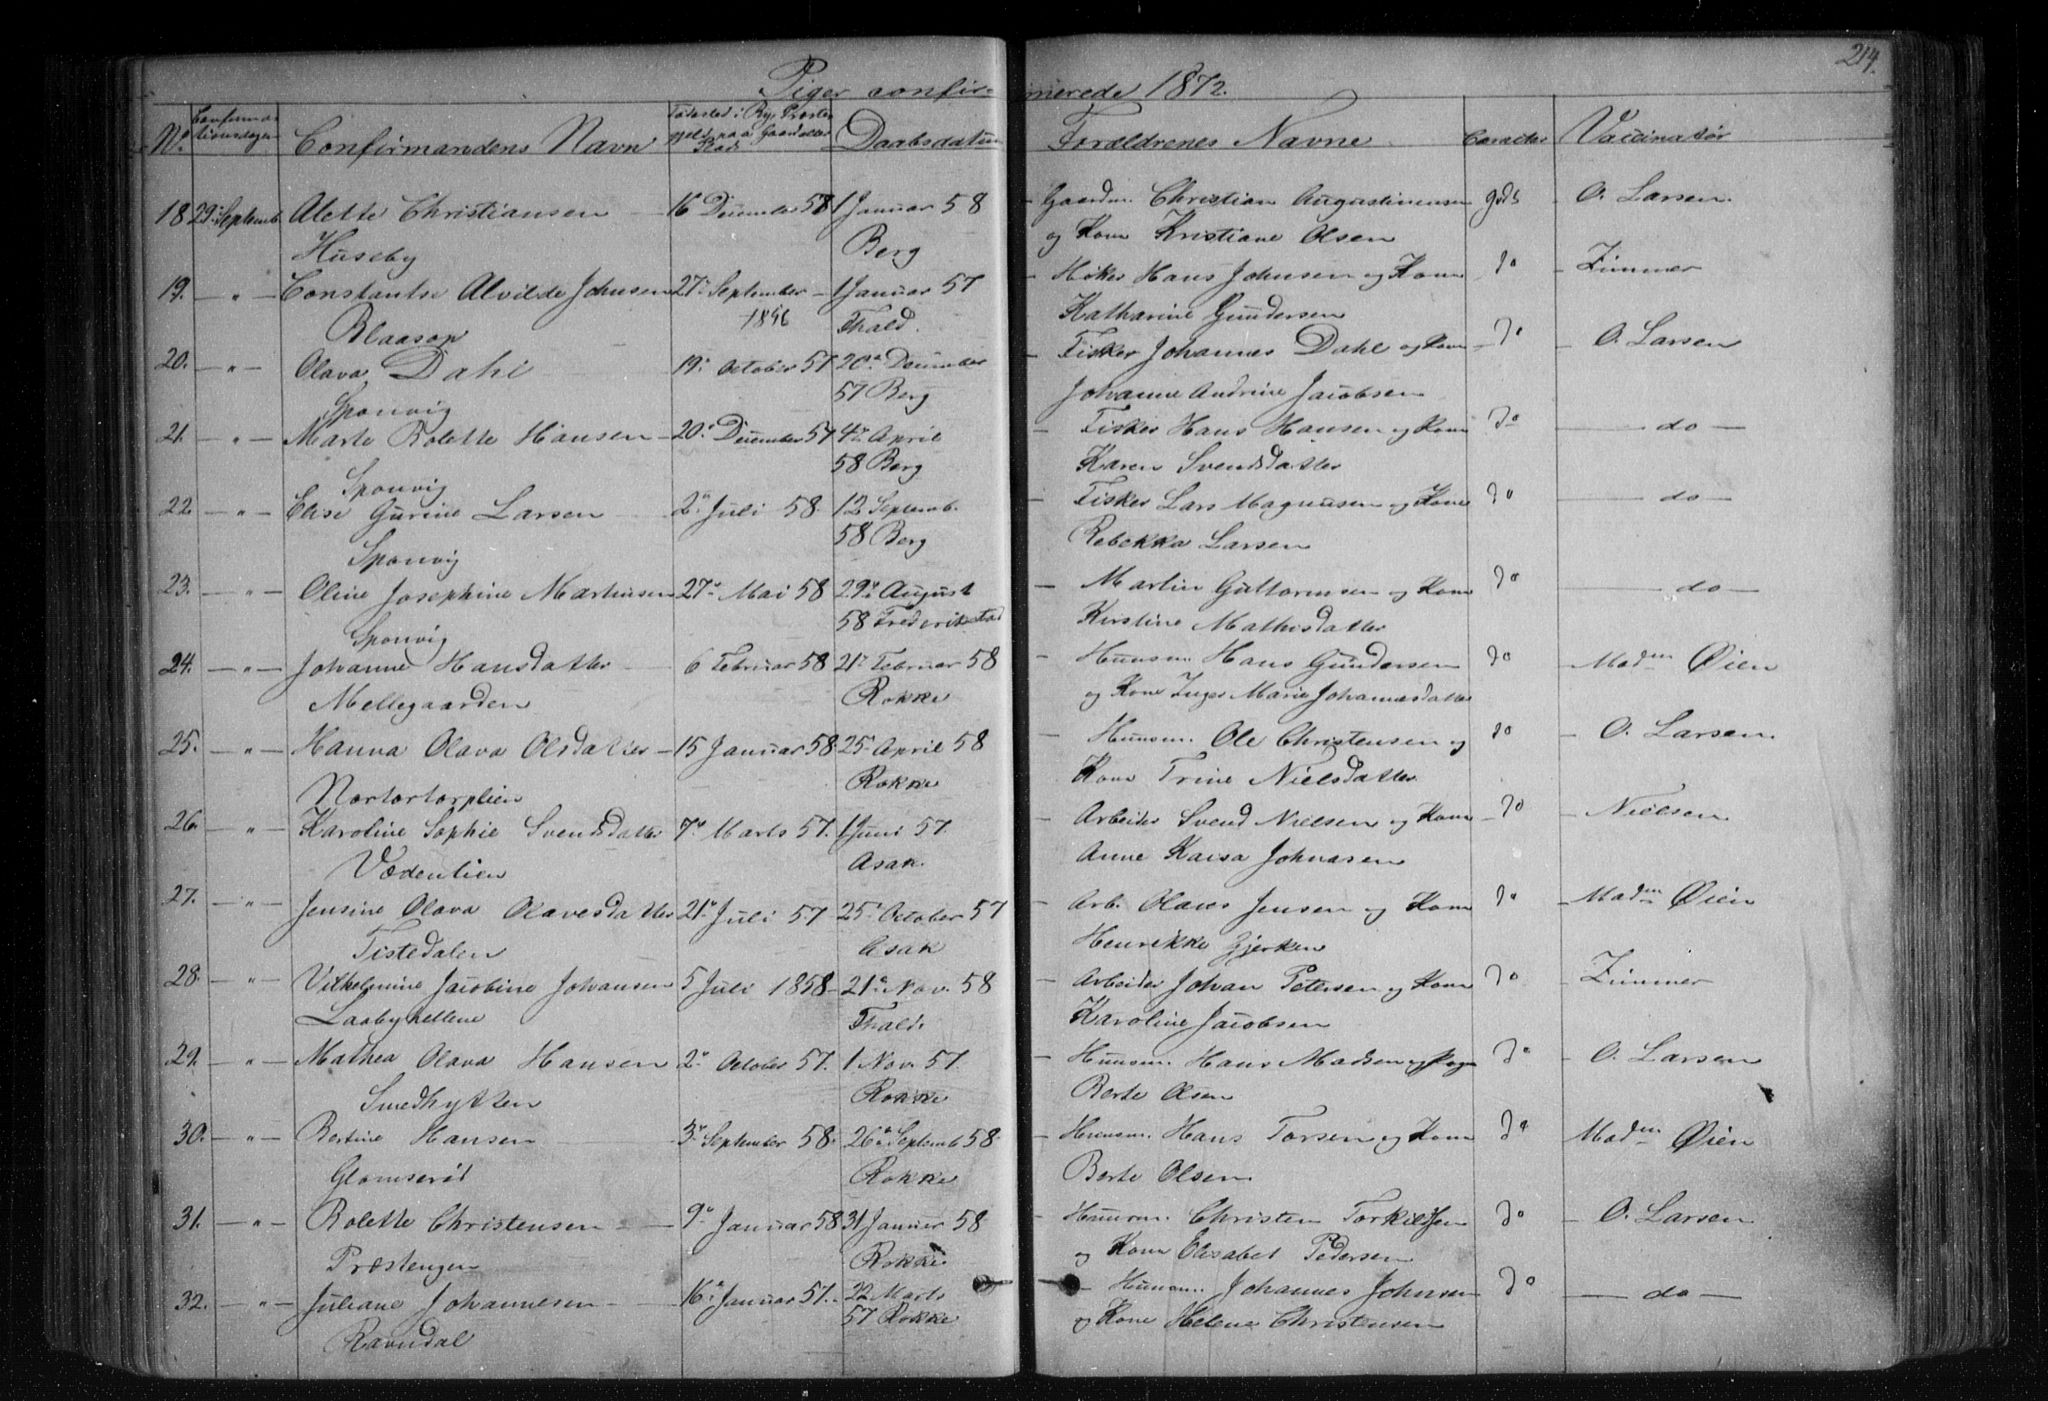 214.
Piger confirmerede 1872.
No. Confirmationsdagen Confirmandens Navn Fødested i By, Præstegjeld, paa Gaard eller Rad Daabsdatum Forældrenes Navne Caracter Vaccinatør
18 29. Septemb Alette Christiansen 16 December 58 1 Januar 58 Gaardm. Christian Augustinussen gods O. Larsen.
Huseby Berg og Kone Kristiane Olsen
19. " Constantse Alvilde Johnsen 27. September 1 Januar 57 Høker Hans Johnsen og Kone do Zimmer
Blaasop 1856 Fhald. Katharine Gundersen
20. " Olava Dahl 19. October 57 20. December Fisker Johannes Dahl og Kone do O. Larsen
Sponvig 57 Berg Johanne Andrine Jacobsen
21. " Marte Bolette Hansen 20. December 57 4. April Fisker Hans Hansen og Kone do do
Sponvig 58 Berg Karen Svendsdatter
22 " Elise Gurine Larsen 2. Juli 58 12 Septemb. Fisker Lars Magnusen og Kone do do
Sponvig 58 Berg Rebekka Larsen
23. " Oline Josephine Martinsen 27. Mai 58 29. August Martin Guttormsen og Kone do do
Sponvig 58 Frederikstad Kirstine Mathisdatter
24. " Johanne Hansdatter 6 Februar 58 21. Februar 58 Huusm. Hans Gundersen do Madm Øien
Mellegaarden Rokke og Kone Inger Marie Johannesdatter
25. " Hanna Olava Olsdatter 15 Januar 58 25. April 58 Huusm. Ole Christensen og do O. Larsen.
Rokke Kone Trine Nielsdatter
26. " Karoline Sophie Svendsdatter 7. Marts 57. 1 Juni 57. Arbeider Svend Nielsen og Kone do Nielsen
Vedenlien Asak. Anne Kaisa Johnasen
27. " Jensine Olava Olavesdatter 21. Juli 57 25. October 57 Arb. Olaves Jensen og Kone do Madm Øien
Tistedalen Asak Henrikke Gjerken
28. " Vilhelmine Jacobine Johansen 5 Juli 1858 21. Nov. 58 Arbeider Johan Petersen og Kone do Zimmer
Laabyhellene Fhald. Karoline Jacobsen
29. " Mathea Olava Hansen 2. October 57. 1 Nov. 57. Huusm. Hans Madsen og do O. Larsen
Smedhytten Rokke Berte Olsen
30. " Bertine Hansen 3. September 58. 26. Septemb 58. Huusm. Hans Torsen og Kone do Madm Øien
Glomserød Rokke Berte Olsen
31. " Bolette Christensen 9. Januar 58 31 Januar 58 Huusm. Christen Torkilsen do O. Larsen
Præstengen Rokke og Kone Elisabet Pedersen
32. " Juliane Johannesen 16. Januar 57. 22 Marts Huusm. Johannes Johnsen do do
Ravndal 57 Rokke og Kone Helene Christensen